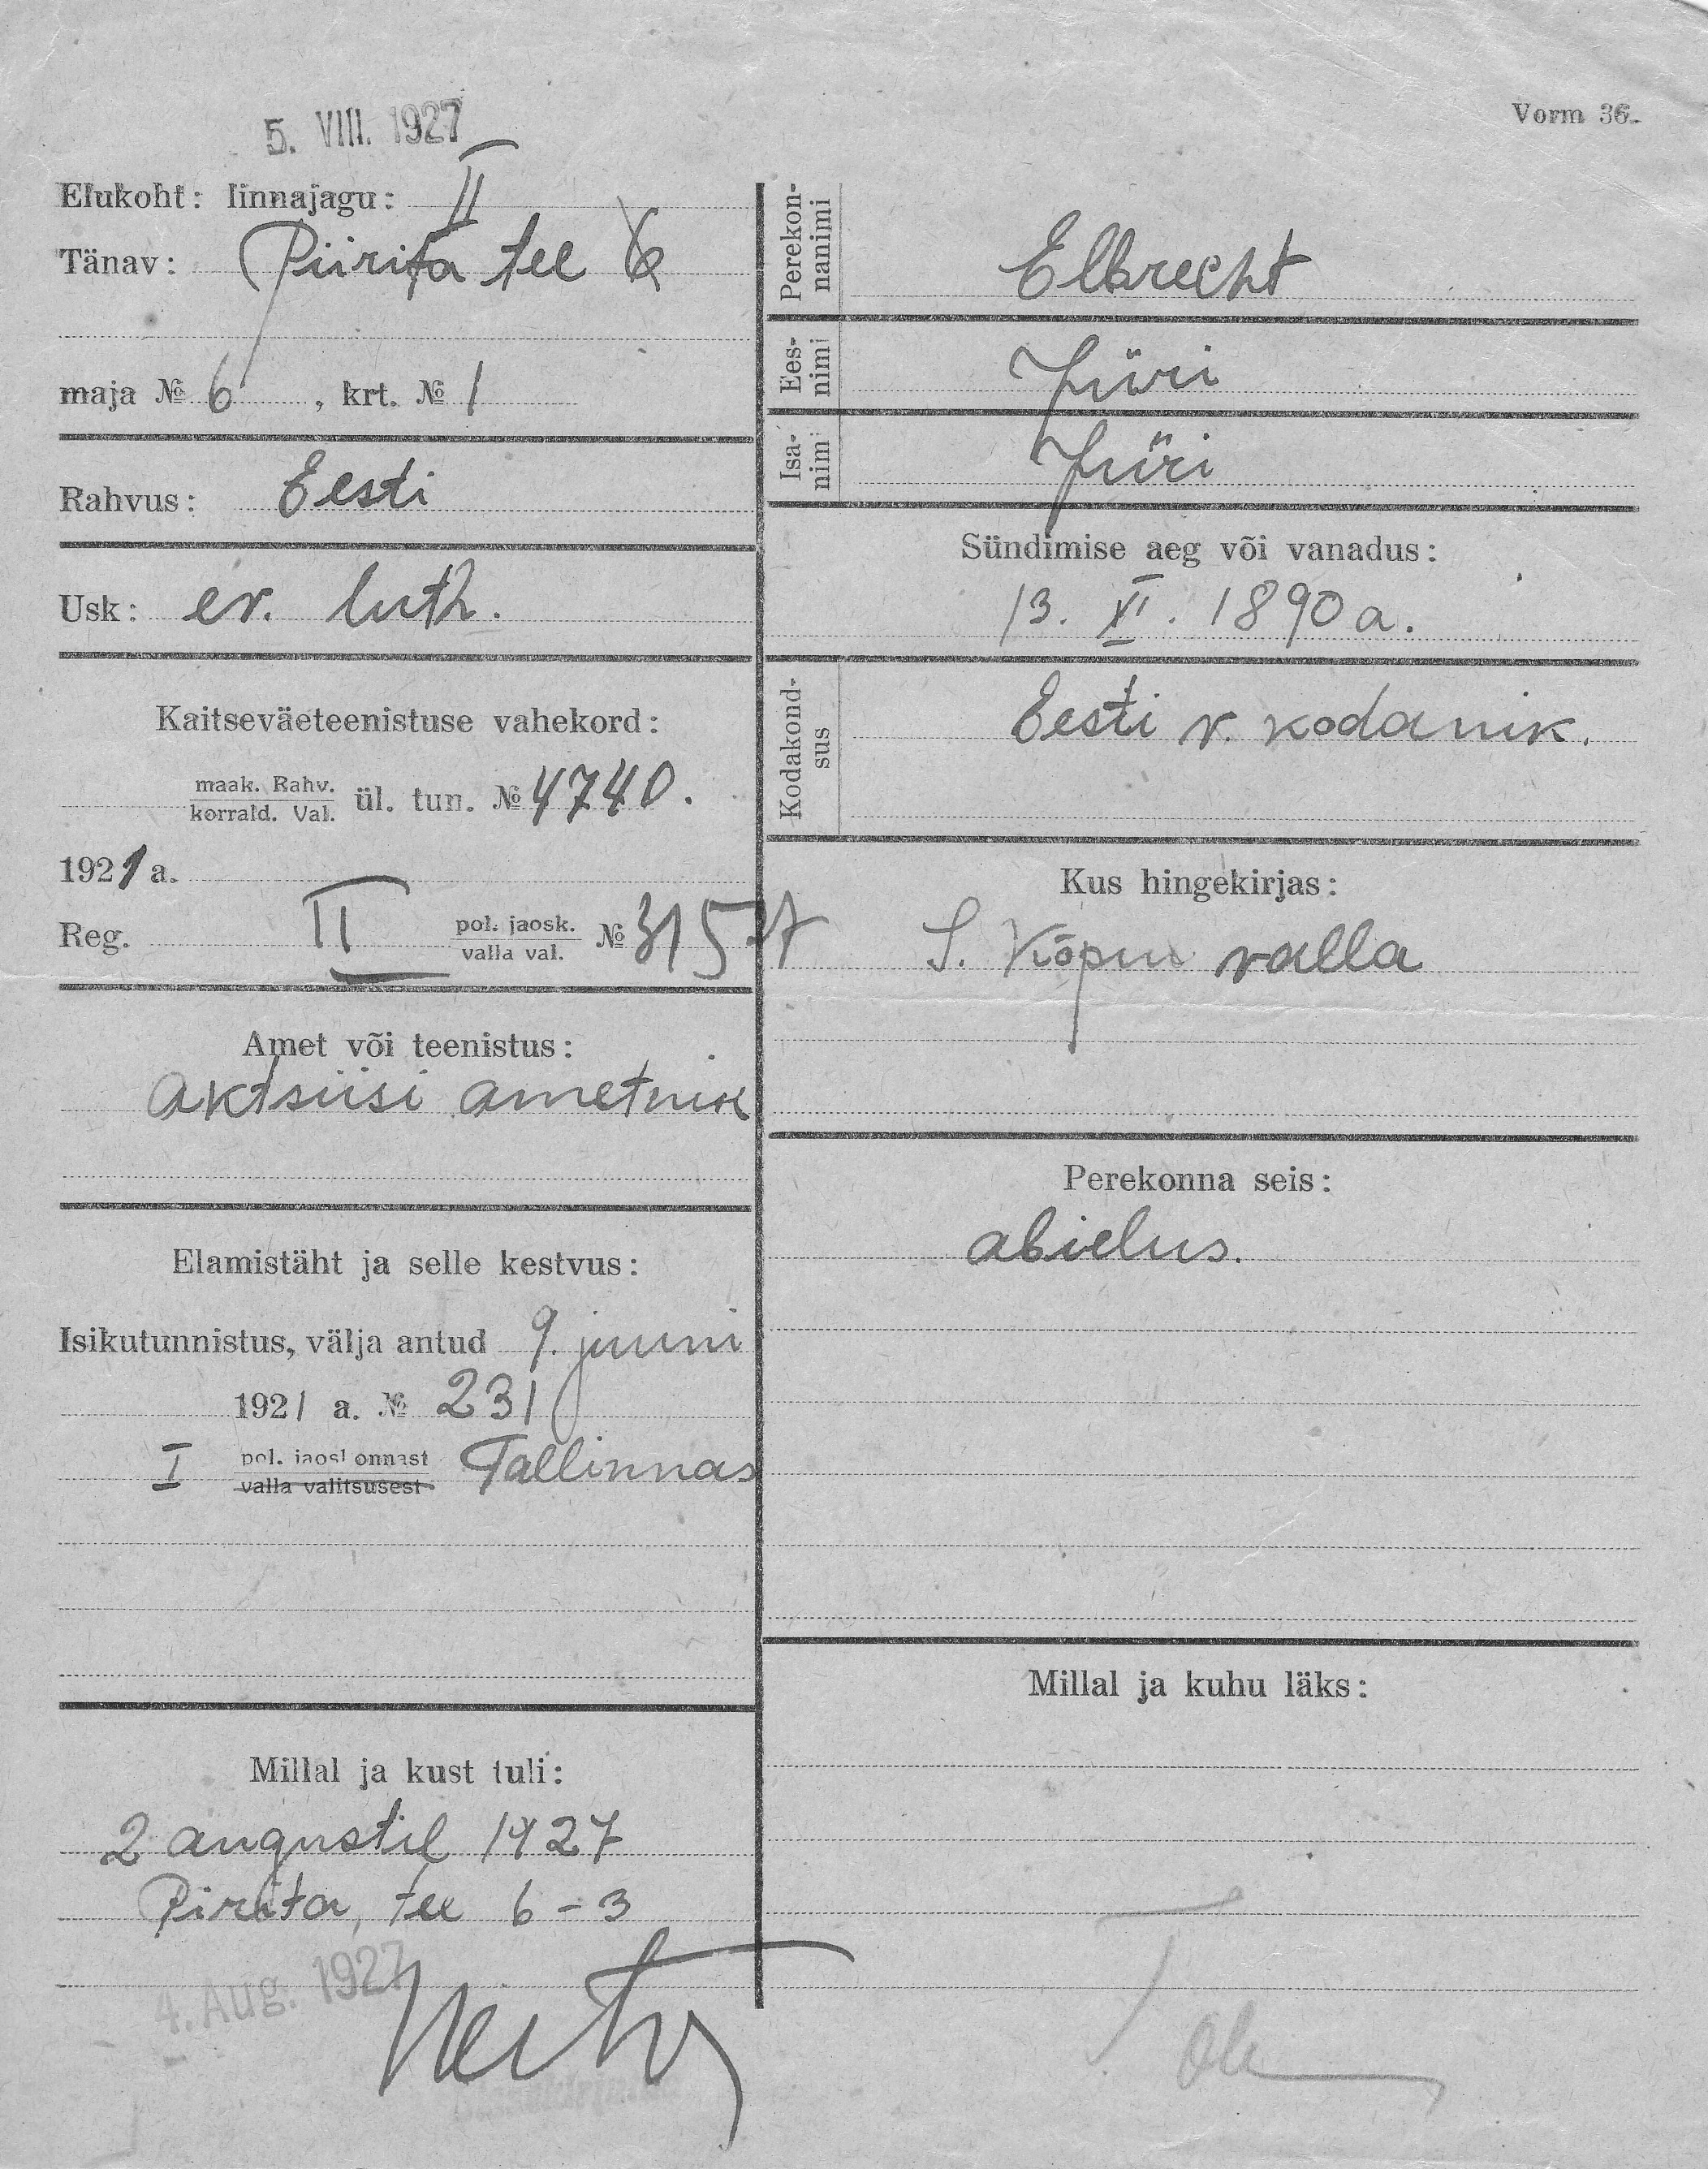 5. VIII. 1927
Vorm 36.
Elukoht: linnajagu: II
Tänav: Piirita tee 6
maja № 6, krt. № 1
Rahvus: Eesti
Usk: ev. luth.
Kaitseväeteenistuse vahekord:
maak. Rahv.
korrald. Val.
ül. tun. № 4740.
1921 a.
Reg. II pol. jaosk.
valla val.
№ 31527
Amet või teenistus:
aktsiisi ametnik
Elamistäht ja selle kestvus:
Isikutunnistus, välja antud 9. juuni
1921 a. № 231
I pol. jaoskonnast Tallinnas
valla valitsusest
Millal ja kust tuli:
2 augustil 1927
Pirita, tee 6-3
4. Aug. 1927
Perekon-
nanimi
Elbrecht
Ees-
nimi
Jüri
Isa-
nimi
Jüri
Sündimise aeg või vanadus:
13. XI. 1890 a.
Kodakond-
sus
Eesti v. kodanik.
Kus hingekirjas:
S. Kõpu valla
Perekonna seis:
abielus.
Millal ja kuhu läks: